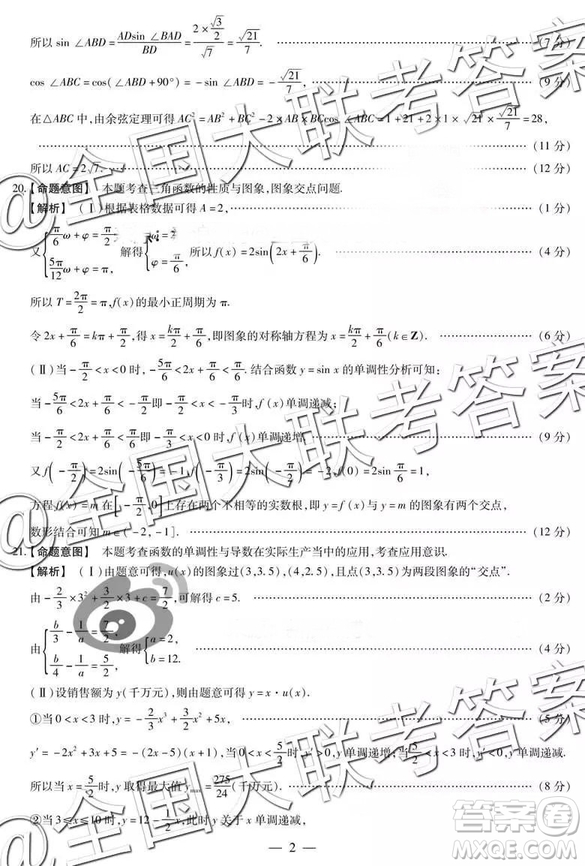 所以 sin ∠ABD = ADsin ∠BAD / BD = (2 × √3/2) / √7 = √21/7. (7 分)
cos ∠ABC = cos(∠ABD + 90°) = - sin ∠ABD = - √21/7, (9 分)
在△ABC 中,由余弦定理可得 AC² = AB² + BC² - 2 × AB × BCcos ∠ABC = 1 + 21 + 2 × 1 × √21 × √21/7 = 28,
(11 分)
所以 AC = 2√7. (12 分)
20.【命题意图】 本题考查三角函数的性质与图象,图象交点问题.
【解析】 (Ⅰ)根据表格数据可得 A = 2, (1 分)
又{ π/6 ω + φ = π/2, 5π/12 ω + φ = π, 解得{ ω = 2, φ = π/6, 所以 f(x) = 2sin(2x + π/6). (4 分)
所以 T = 2π/2 = π, f(x) 的最小正周期为 π.
令 2x + π/6 = kπ + π/2, 得 x = kπ/2 + π/6, 即图象的对称轴方程为 x = kπ/2 + π/6 (k∈Z). (6 分)
(Ⅱ)当 - π/2 < x < 0 时, - 5π/6 < 2x + π/6 < π/6. 结合函数 y = sin x 的单调性分析可知:
当 - 5π/6 < 2x + π/6 < - π/2 即 - π/2 < x < - π/3 时, f(x) 单调递减;
当 - π/2 < 2x + π/6 < π/6 即 - π/3 < x < 0 时, f(x) 单调递增, (9 分)
又 f(- π/2) = 2sin(- 5π/6) = - 1, f(- π/3) = 2sin(- π/2) = - 2, f(0) = 2sin π/6 = 1,
方程 f(x) = m 在[- π/2, 0]上存在两个不相等的实数根,即 y = f(x) 与 y = m 的图象有两个交点,
数形结合可知 m∈(- 2, - 1]. (12 分)
21.【命题意图】 本题考查函数的单调性与导数在实际生产当中的应用,考查应用意识.
【解析】 (Ⅰ)由题意可得, u(x) 的图象过(3,3.5),(4,2.5),且点(3,3.5)为两段图象的“交点”.
由 - 2/3 × 3² + 3/2 × 3 + c = 7/2, 可解得 c = 5. (2 分)
由{ b/3 - 1/a = 7/2, b/4 - 1/a = 5/2, 解得{ a = 2, b = 12. (4 分)
(Ⅱ)设销售额为 y(千万元),则由题意可得 y = x · u(x).
①当 0 < x < 3 时, y = - 2/3 x³ + 3/2 x² + 5x, (5 分)
y′ = - 2x² + 3x + 5 = - (2x - 5)(x + 1), 当 0 < x < 5/2 时, y′ > 0, y 单调递增;当 5/2 < x < 3 时, y′ < 0, y 单调递减.
所以当 x = 5/2 时, y 取得最大值 yₘₐₓ = 275/24 (千万元). (8 分)
②当 3 ≤ x ≤ 10 时, y = 12 - 1/2 x, 此时 y 关于 x 单调递减,
— 2 —
@全国大联考答案
@全国大联考答案
@全国大联考答案
答案圈
MXQE.COM